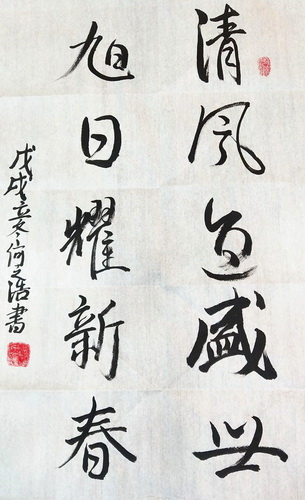 清风盛世
旭日耀新春
戊戌立冬何之浩書